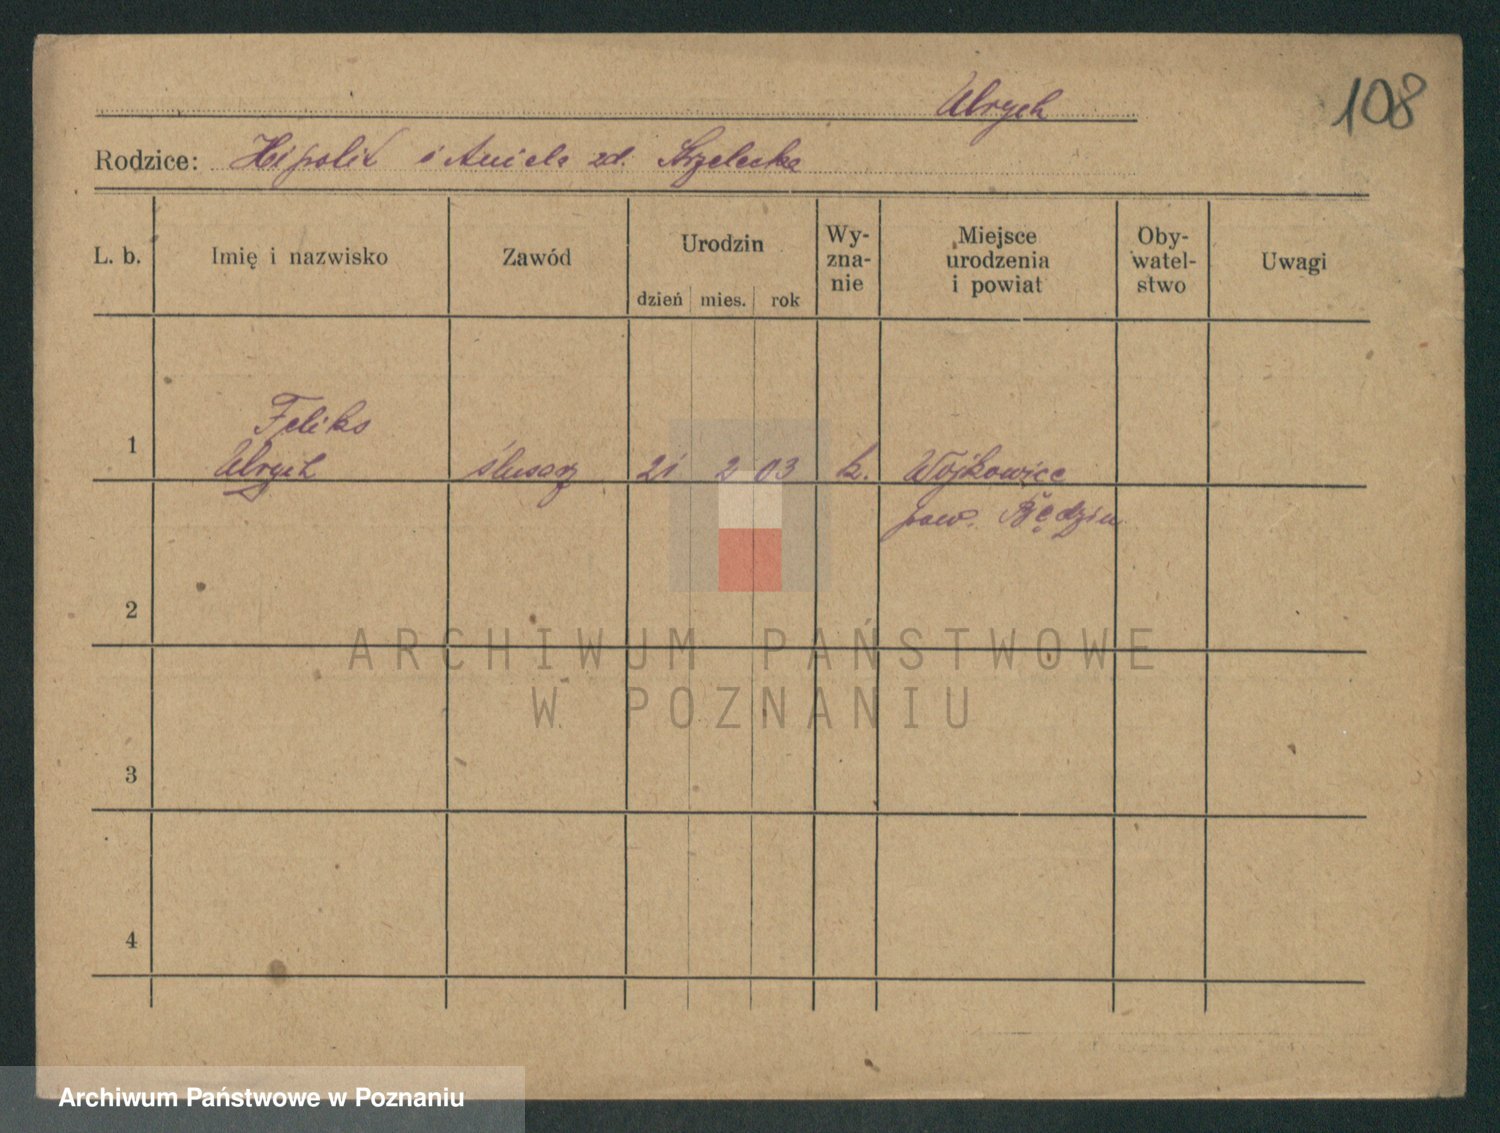 Ulrych
108
Rodzice: Hipolit i Aniela zd. Strzelecka
L. b.
Imię i nazwisko
Zawód
Urodzin
dzień mies. rok
Wy-
zna-
nie
Miejsce
urodzenia
i powiat
Oby-
watel-
stwo
Uwagi
1
Feliks
Ulrych
ślusarz
21 2 03
k.
Wojkowice
pow. Będzin
2
3
4
ARCHIWUM PAŃSTWOWE
W POZNANIU
Archiwum Państwowe w Poznaniu